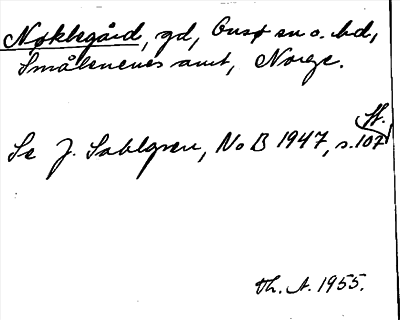 Nøklegård, gd, Onsø sn o. hd,
Smålenenes amt, Norge.
ff.
Se J. Sahlgren, NoB 1947, s. 107
Th. A. 1955.